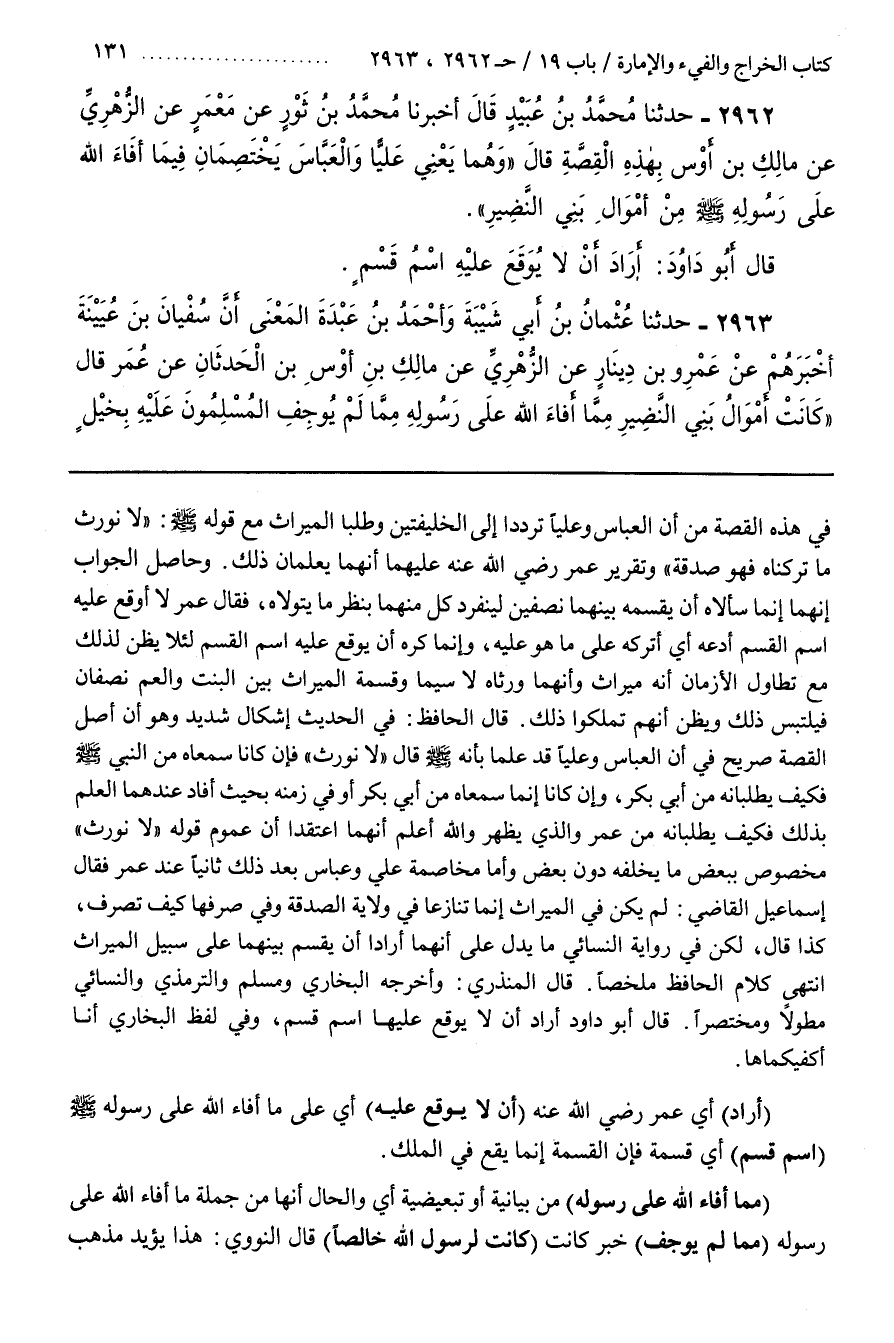 كتاب الخراج والفيء والإمارة / باب ١٩ / حـ ٢٩٦٢ ، ٢٩٦٣ ........................ ١٣١
٢٩٦٢ ـ حدثنا مُحمَّدُ بنُ عُبَيْدٍ قَالَ أخبرنا مُحمَّدُ بنُ ثَوْرٍ عن مَعْمَرٍ عن الزُّهْرِيِّ
عن مالِكِ بن أَوْس بِهٰذِهِ الْقِصَّةِ قالَ «وَهُما يَعْنِي عَلِيًّا وَالْعَبَّاسَ يَخْتَصِمَانِ فِيمَا أفَاءَ الله
علَى رَسُولِهِ ﷺ مِنْ أمْوَالِ بَنِي النَّضِيرِ».
قال أَبُو دَاوُدَ: أَرَادَ أَنْ لا يُوَقَعَ عليْهِ اسْمُ قَسْمٍ.
٢٩٦٣ ـ حدثنا عُثْمانُ بنُ أبي شَيْبَةَ وَأحْمَدُ بنُ عَبْدَةَ المَعْنَى أَنَّ سُفْيانَ بنَ عُيَيْنَةَ
أخْبَرَهُمْ عنْ عَمْرِو بن دِينَارٍ عن الزُّهْرِيِّ عن مالِكِ بنِ أوْسِ بن الْحَدثَانِ عن عُمَر قال
«كَانَتْ أَمْوَالُ بَنِي النَّضِيرِ مِمَّا أَفاءَ الله علَى رَسُولِهِ مِمَّا لَمْ يُوجِفِ المُسْلِمُونَ عَلَيْهِ بِخَيْلٍ
في هذه القصة من أن العباس وعلياً ترددا إلى الخليفتين وطلبا الميراث مع قوله ﷺ: «لا نورث
ما تركناه فهو صدقة» وتقرير عمر رضي الله عنه عليهما أنهما يعلمان ذلك. وحاصل الجواب
إنهما إنما سألاه أن يقسمه بينهما نصفين لينفرد كل منهما بنظر ما يتولاه، فقال عمر لا أوقع عليه
اسم القسم أدعه أي أتركه على ما هو عليه، وإنما كره أن يوقع عليه اسم القسم لئلا يظن لذلك
مع تطاول الأزمان أنه ميراث وأنهما ورثاه لا سيما وقسمة الميراث بين البنت والعم نصفان
فيلتبس ذلك ويظن أنهم تملكوا ذلك. قال الحافظ: في الحديث إشكال شديد وهو أن أصل
القصة صريح في أن العباس وعلياً قد علما بأنه ﷺ قال «لا نورث» فإن كانا سمعاه من النبي ﷺ
فكيف يطلبانه من أبي بكر، وإن كانا إنما سمعاه من أبي بكر أو في زمنه بحيث أفاد عندهما العلم
بذلك فكيف يطلبانه من عمر والذي يظهر والله أعلم أنهما اعتقدا أن عموم قوله «لا نورث»
مخصوص ببعض ما يخلفه دون بعض وأما مخاصمة علي وعباس بعد ذلك ثانياً عند عمر فقال
إسماعيل القاضي: لم يكن في الميراث إنما تنازعا في ولاية الصدقة وفي صرفها كيف تصرف،
كذا قال، لكن في رواية النسائي ما يدل على أنهما أرادا أن يقسم بينهما على سبيل الميراث
انتهى كلام الحافظ ملخصاً. قال المنذري: وأخرجه البخاري ومسلم والترمذي والنسائي
مطولاً ومختصراً. قال أبو داود أراد أن لا يوقع عليهـا اسم قسم، وفي لفظ البخاري أنـا
أكفيكماها.
(أراد) أي عمر رضي الله عنه (أن لا يـوقع عليـه) أي على ما أفاء الله على رسوله ﷺ
(اسم قسم) أي قسمة فإن القسمة إنما يقع في الملك.
(مما أفاء الله على رسوله) من بيانية أو تبعيضية أي والحال أنها من جملة ما أفاء الله على
رسوله (مما لم يوجف) خبر كانت (كانت لرسول الله خالصاً) قال النووي: هذا يؤيد مذهب